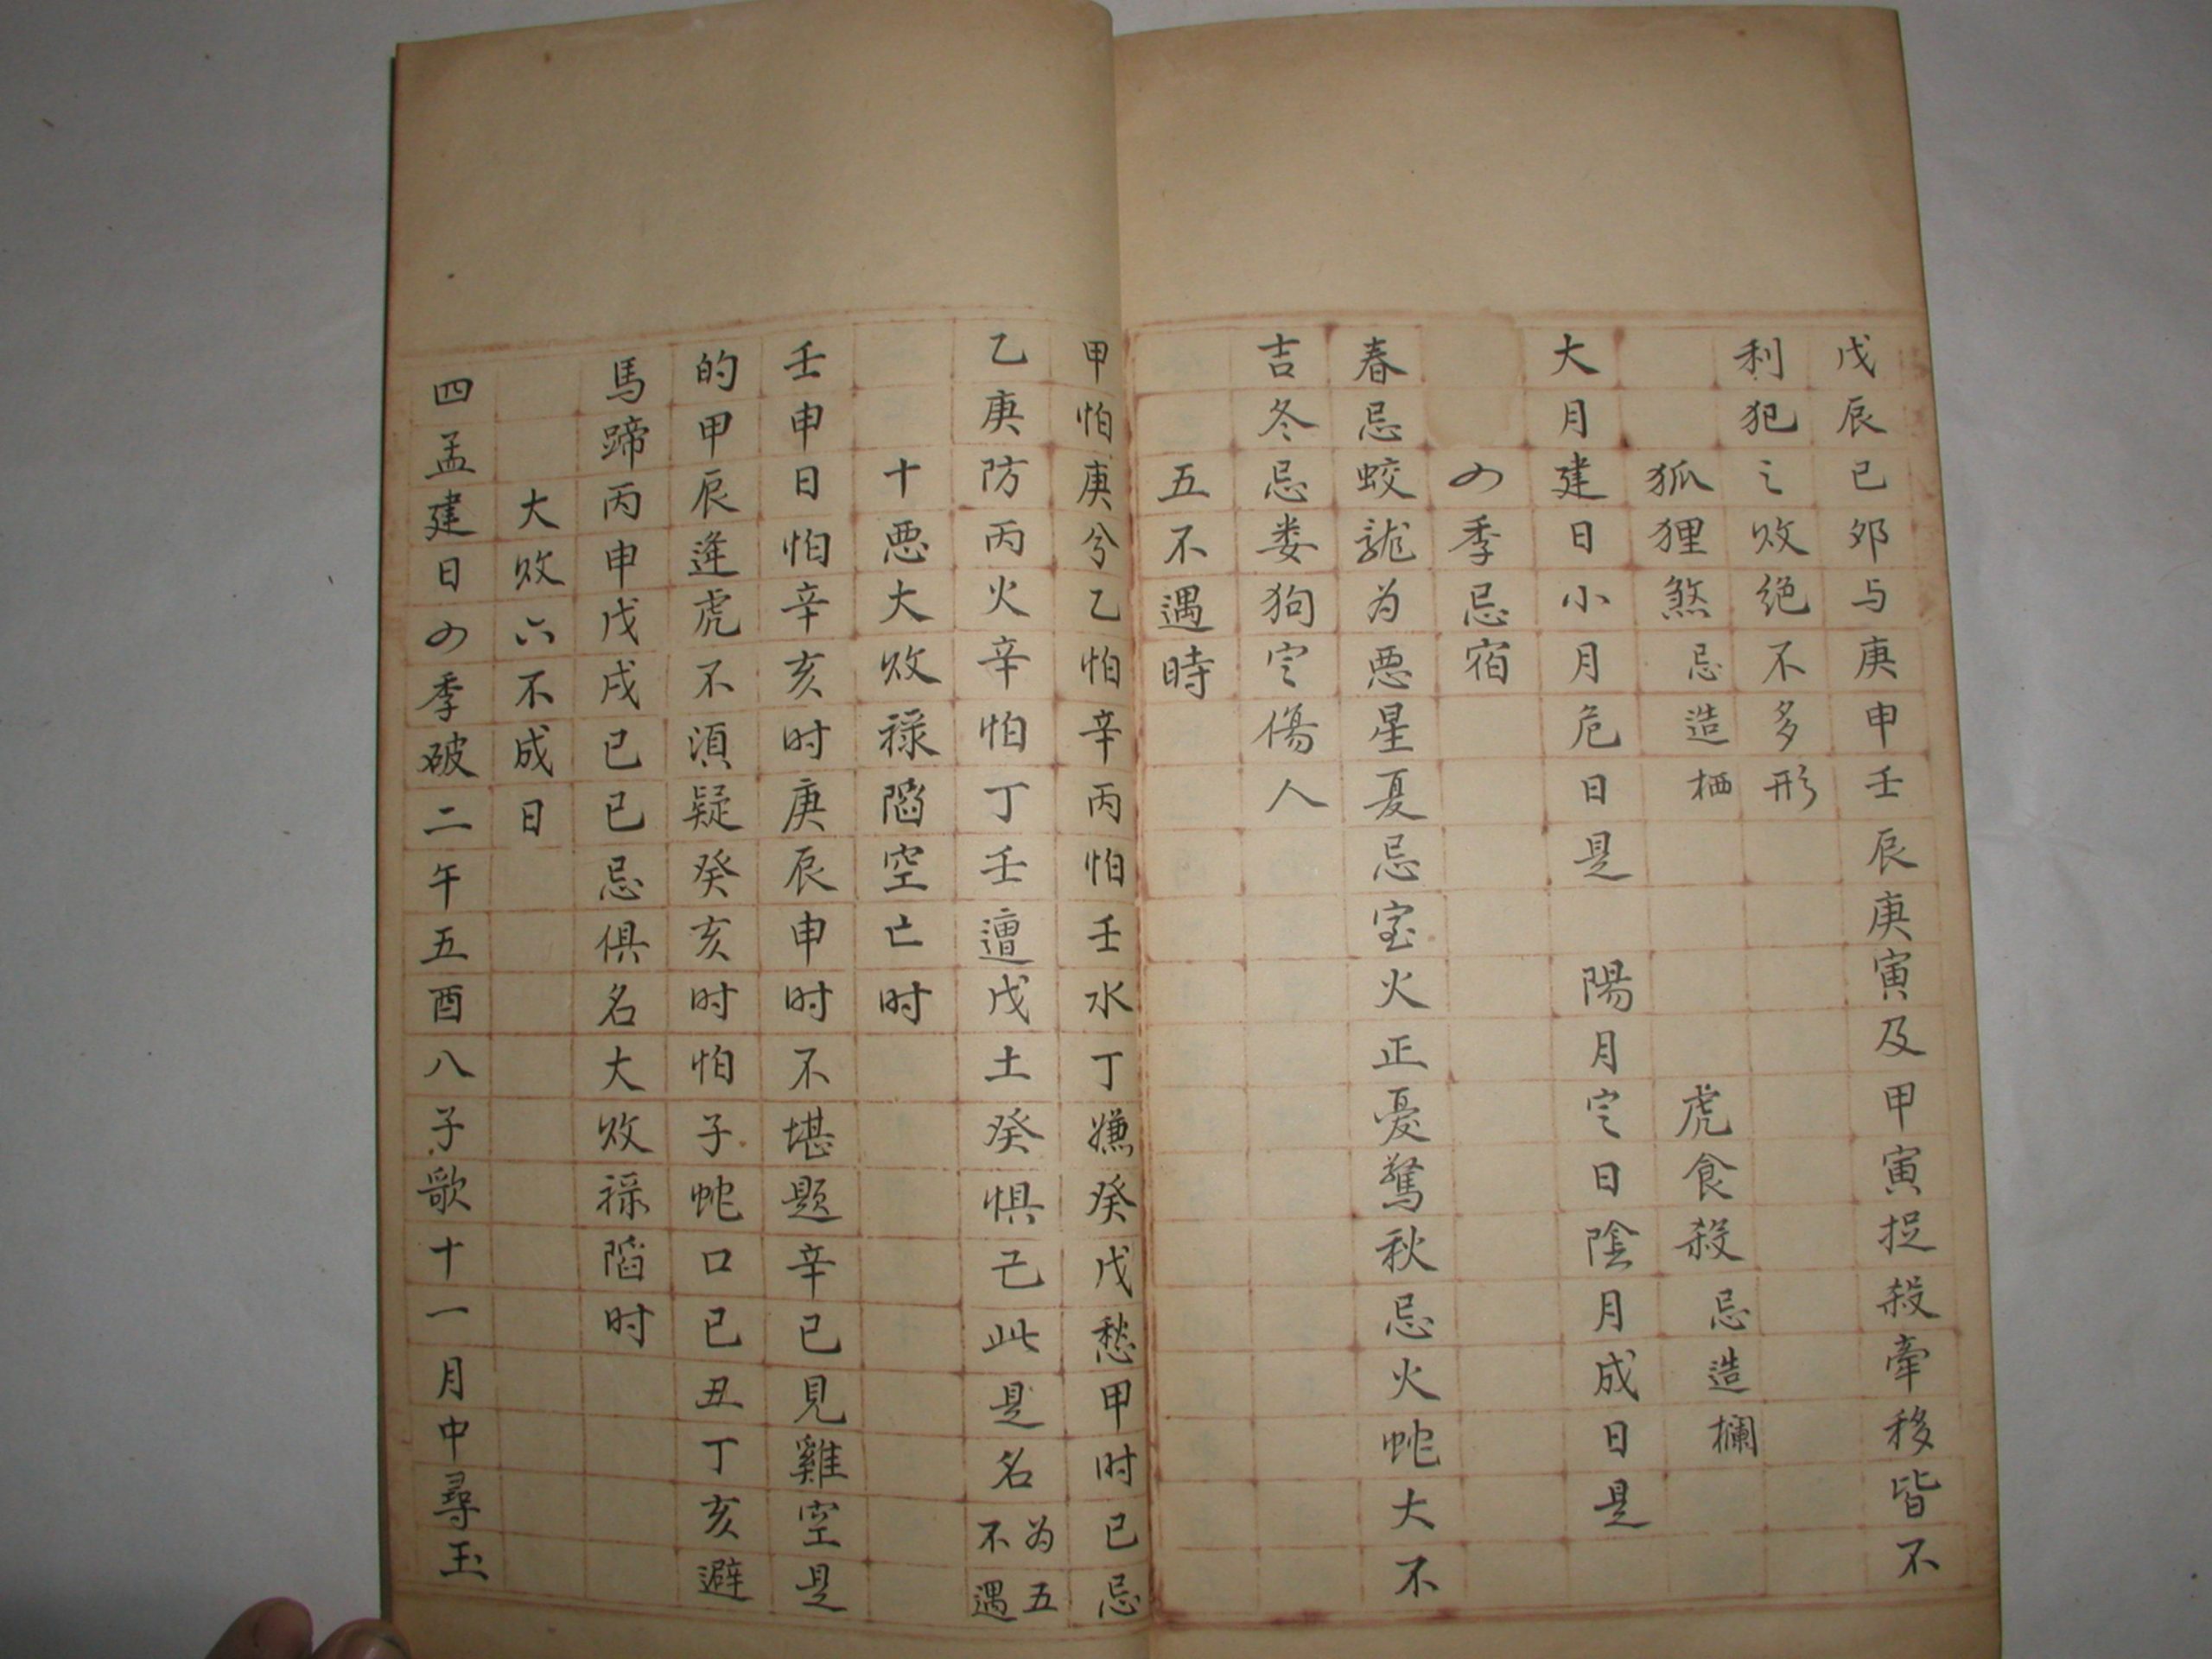 戊辰已夘与庚申壬辰庚寅及甲寅捉殺牽移皆不
利犯之敗绝不多形
狐狸煞忌造栖 虎食殺忌造欄
大月建日小月危日是 陽月定日陰月成日是
四季忌宿
春忌蛟龍为悪星夏忌宝火正憂驚秋忌火蛇大不
吉冬忌娄狗定傷人
五不遇時
甲怕庚兮乙怕辛丙怕壬水丁嫌癸戊愁甲时已忌
乙庚防丙火辛怕丁壬遭戊土癸惧己此是名为五不遇
十悪大敗禄陷空亡时
壬申日怕辛亥时庚辰申时不堪题辛已見雞空是
的甲辰逢虎不須疑癸亥时怕子蛇口已丑丁亥避
馬蹄丙申戊戌已已忌俱名大敗禄陷时
大敗六不成日
四孟建日四季破二午五酉八子歌十一月中尋玉